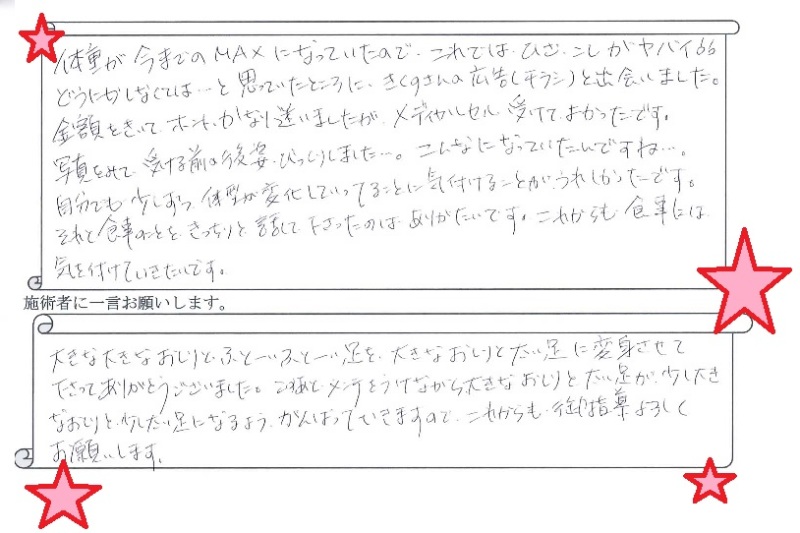 体重が今までのMAXになっていたので、これでは、ひざ、こしがヤバイ66
どうにかしなくては…と思っていたところに、さくらさんの広告(チラシ)と出会いました。
金額をきいて、ホント、かなり迷いましたが、メディカルセル受けてよかったです。
写真をみて、受ける前の後姿、びっくりしました…。こんなになっていたんですね…。
自分でも少しずつ、体型が変化していってることに気付けることが、うれしかったです。
それと食事のことを、きっちりと話して下さったのはありがたいです。これからも食事には
気を付けていきたいです。
施術者に一言お願いします。
大きな大きなおしりと、ふと〜いふと〜い足を、大きなおしりと太い足に変身させて
下さってありがとうございました。この後もメンテをうけながら大きなおしりと太い足が、少し大き
なおしりと、少し太い足になるよう、がんばっていきますので、これからも御指導よろしく
お願いします。